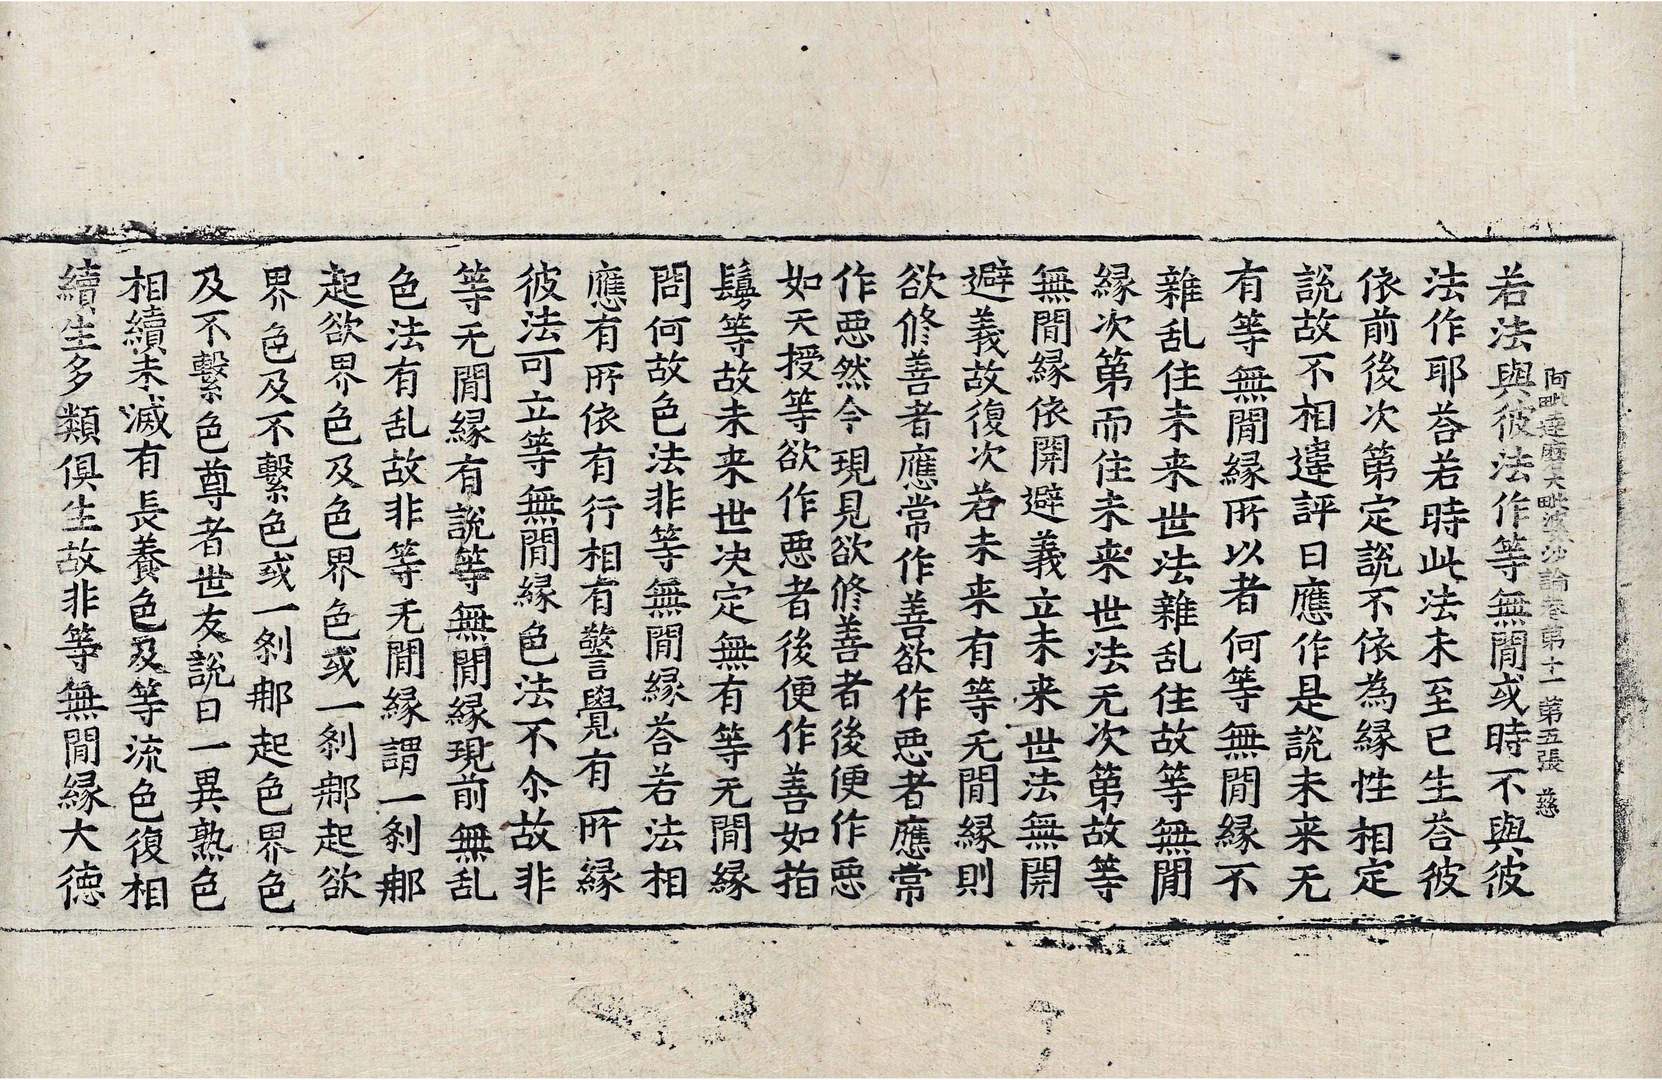 阿毗達磨大毗婆沙論卷第十一 第五張 慈
若法與彼法作等無間或時不與彼
法作耶荅若時此法未至已生荅彼
依前後次第定說不依為縁性相定
說故不相違評曰應作是說未来无
有等無間縁所以者何等無間縁不
雜乱住未来世法雜乱住故等無間
縁次第而住未来世法无次第故等
無間縁依開避義立未来世法無開
避義故復次若未来有等无間縁則
欲修善者應常作善欲作惡者應常
作惡然今現見欲修善者後便作惡
如天授等欲作惡者後便作善如指
鬘等故未来世决定無有等无間縁
問何故色法非等無間縁荅若法相
應有所依有行相有警覺有所縁
彼法可立等無間縁色法不尒故非
等无間縁有說等無間縁現前無乱
色法有乱故非等无間縁謂一剎那
起欲界色及色界色或一剎那起欲
界色及不繫色或一剎那起色界色
及不繫色尊者世友說曰一異熟色
相續未滅有長養色及等流色復相
續生多類俱生故非等無間縁大德